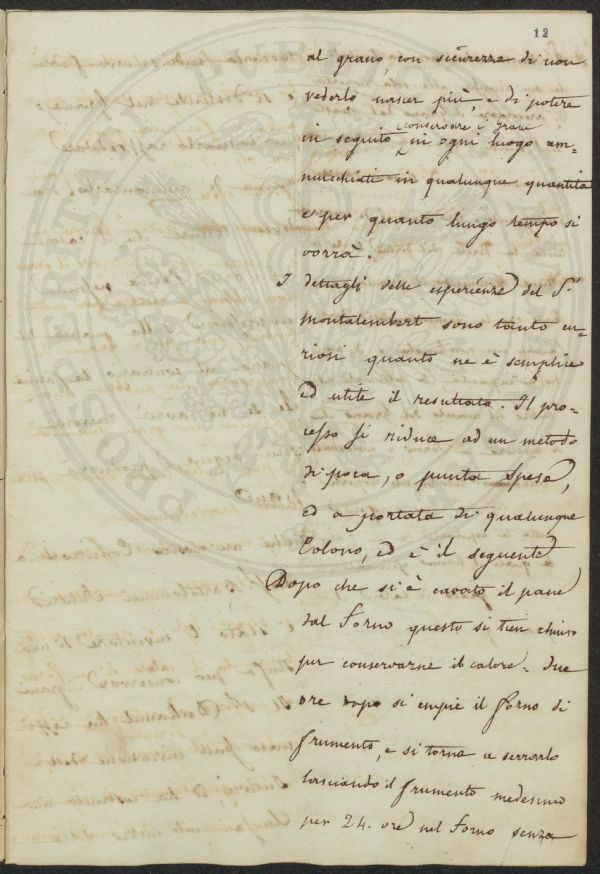 12
al grano, con sicurezza di non
vederlo nascer più, e di potere
conservare i Grani
in seguito in ogni luogo am=
mucchiati in qualunque quantità
e per quanto lungo tempo si
vorrà.
I dettagli delle esperienze del Sr
Montalembert sono tanto cu=
riosi quanto ne è semplice
ed utile il resultato. Il pro=
cesso si riduce ad un metodo
di poca, o punta spesa,
ed a portata di qualunque
Colono, ed è il seguente
Dopo che si è cavato il pane
dal Forno questo si tien chiuso
per conservarne il calore= due
ore dopo si empie il forno di
frumento, e si torna a serrarlo
lasciando il frumento medesimo
per 24. ore nel Forno senza